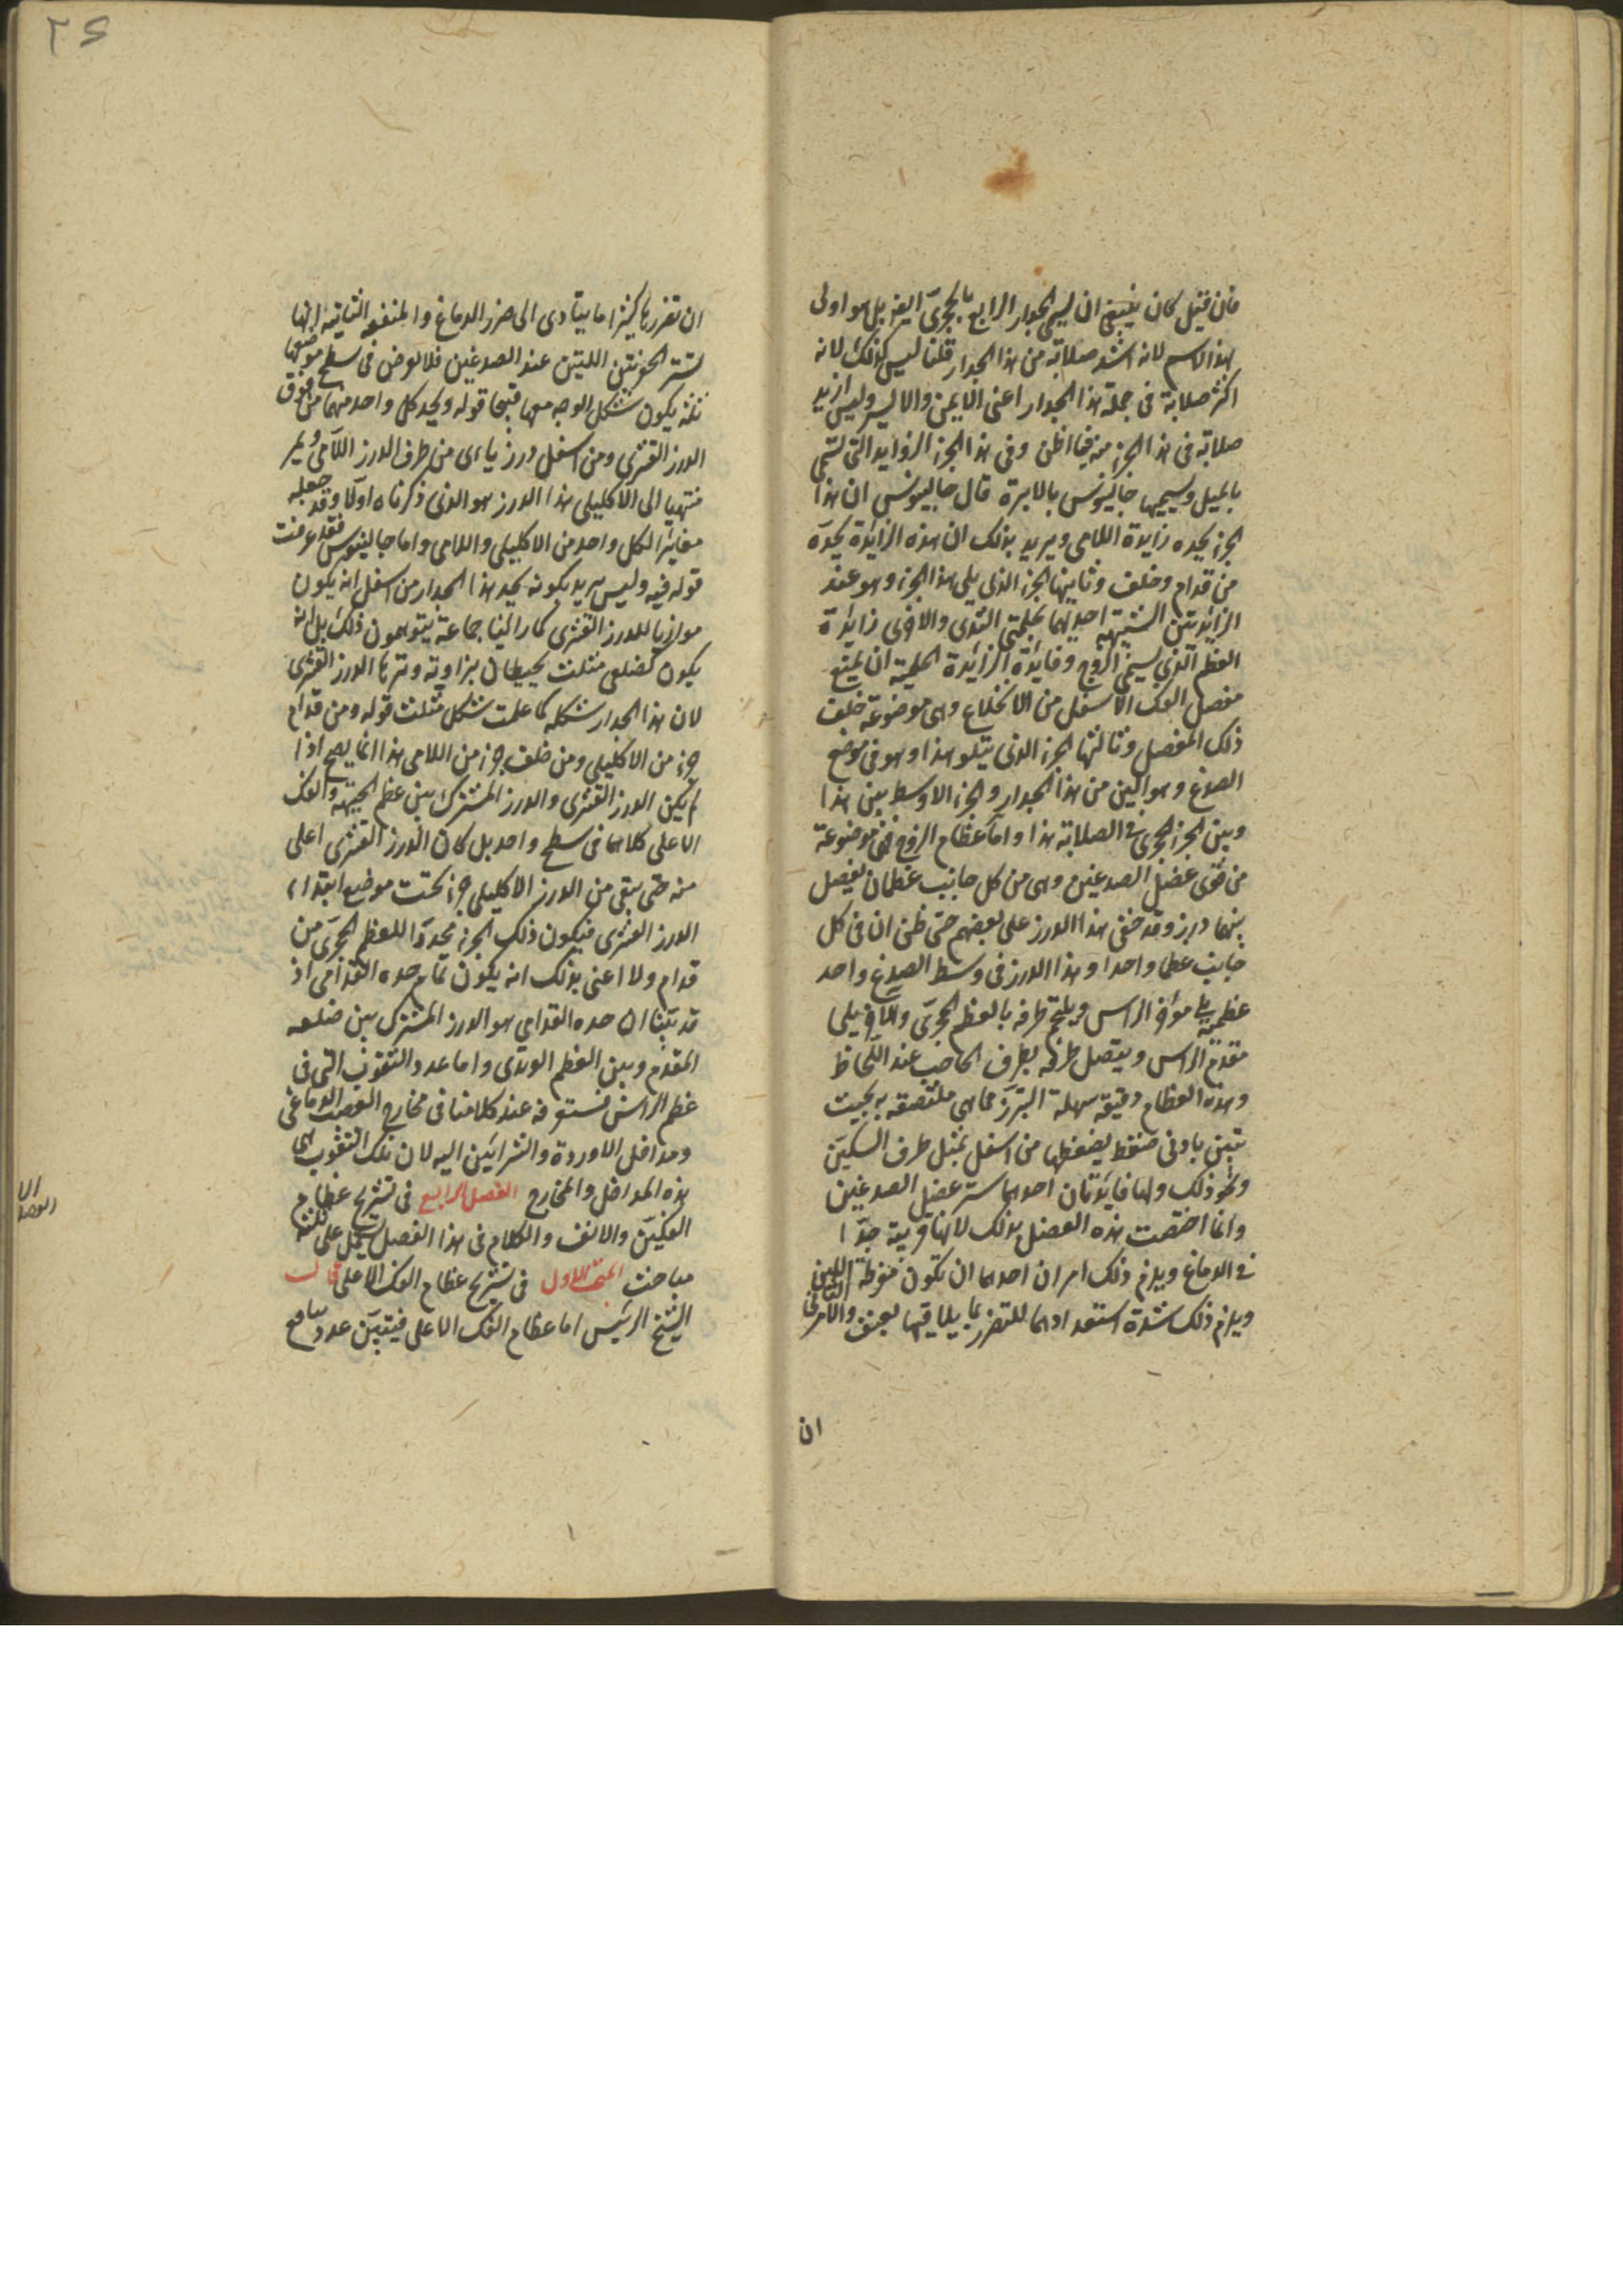 فان قيل كان ينبغى ان يسمى الجدار الرابع بالحجرى ايضا بل هو اولى
بهذا الاسم لانه اشد صلابة من هذا الجدار قلنا ليس كذلك لانه
اكثر صلابة فى جملة هذا الجدار اعنى الايمن والايسر وليس ازيد
صلابة فى هذا الجزء منه فيما اظن وفى هذا الجزء الزوايد التى تسمى
بالميل ويسميها جالينوس بالابرة قال جالينوس ان هذا
الجزء يحده زايدة اللامى ويريد بذلك ان هذه الزايدة تحده
من قدام وخلف وثانيها الجزء الذى يلى هذا الجزء وهو عند
الزايدتين الشبيهة احديهما بحلمتى الثدى والاخرى زايدة
العظم الذى يسمى الزوج وفايدة الزايدة الحلمية ان يمنع
مفصل الفك الاسفل من الانخلاع وهى موضوعة خلف
ذلك المفصل وثالثها الجزء الذى يتلو هذا وهو فى موضع
الصدغ وهو الين من هذا الجدار والجزء الاوسط بين هذا
وبين الجزء الحجرى فى الصلابة هذا واما عظام الزوج فهى موضوعة
من فوق عضل الصدغين وهى من كل جانب عظمان يفصل
بينهما درز وقد خفى هذا الدرز على بعضهم حتى ظن ان فى كل
جانب عظما واحدا وهذا الدرز فى وسط الصدغ واحد
عظميه يلى مؤخر الراس ويلتحم طرفه بالعظم الحجرى والآخر يلى
مقدم الراس ويتصل طرفه بطرف الحاجب عند اللحاظ
وهذه العظام دقيقة سهلة التبرز مما هى ملتصقة به بحيث
تتبين بادنى ضغط يضغطها من اسفل بمثل طرف السكين
ونحو ذلك ولها فايدتان احدهما ستر عضل الصدغين
وانما اختصت هذه العضل بذلك لانها قريبة جدا
من الدماغ ويلزم ذلك امران احدهما ان تكون مفرطة اللين
ويلزم ذلك شدة استعدادها للتضرر بما يلاقيها بعنف والامر الثانى
ان
ان تضررها كثيرا ما يتادى الى ضرر الدماغ والمنفعة الثانية انها
تستر الحفرتين اللتين عند الصدغين فلا لوضن فى سطح موضعها
لئلا يكون شكل الوجه معها قبيحا قوله ويحد كل واحد منهما من فوق
الدرز القشرى ومن اسفل درز ياتى من طرف الدرز اللامى ويمر
منتهيا الى الاكليلى هذا الدرز هو الذى ذكرناه اولا وقد جعله
مغايرا لكل واحد من الاكليلى واللامى واما جالينوس فقد عرفت
قوله فيه وليس يريد بكونه يحد هذا الجدار من اسفل انه يكون
موازيا للدرز القشرى كما راينا جماعة يتوهمون ذلك بل انه
يكون كضلعى مثلث يحيطان بزاوية وترها الدرز القشرى
لان هذا الجدار شكله كما علمت شكل مثلث قوله ومن قدام
جزء من الاكليلى ومن خلف جزء من اللامى هذا انما يصح اذا
لم يكن الدرز القشرى والدرز المشترك بين عظم الجبهة والفك
الاعلى كلاهما فى سطح واحد بل كان الدرز القشرى اعلى
منه حتى يبقى من الدرز الاكليلى جزء تحت موضع ابتداء
الدرز القشرى فيكون ذلك الجزء محددا للعظم الحجرى من
قدام ولا اعنى بذلك انه يكون تمام حده القدامى اذ
قد بينا ان حده القدامى هو الدرز المشترك بين ضلعه
المقدم وبين العظم الوتدى واما عدد الثقوب التى فى
عظم الراس فستعرفه عند كلامنا فى مخارج العصب الدماغى
ومداخل الاوردة والشرائين اليه لان تلك الثقوب هى
هذه المداخل والمخارج الفصل الرابع فى تشريح عظام
الفكين والانف والكلام فى هذا الفصل يشتمل على ثلثة
مباحث المبحث الاول فى تشريح عظام الفك الاعلى قال
الشيخ الرئيس اما عظام الفك الاعلى فيتبين عددها مع